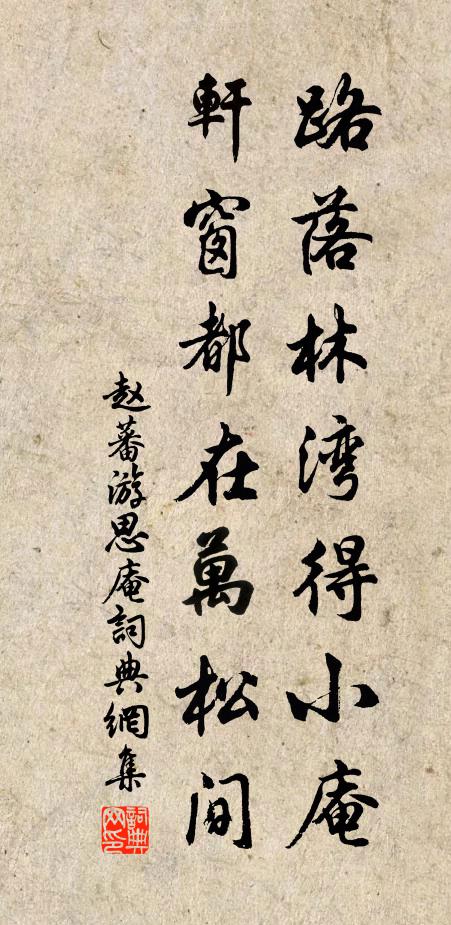 路落林湾得小庵
軒窗都在萬松间
赵蕃游思庵詞典網集
詞典网印